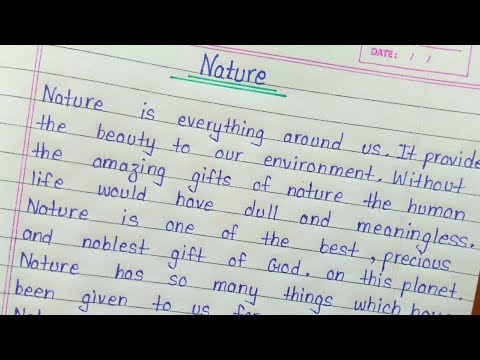 DATE: / /
Nature
Nature is everything around us. It provide
the beauty to our environment. Without
the amazing gifts of nature the human
life would have dull and meaningless.
Nature is one of the best, precious
and noblest gift of God. on this planet.
Nature has so many things which have
been given to us